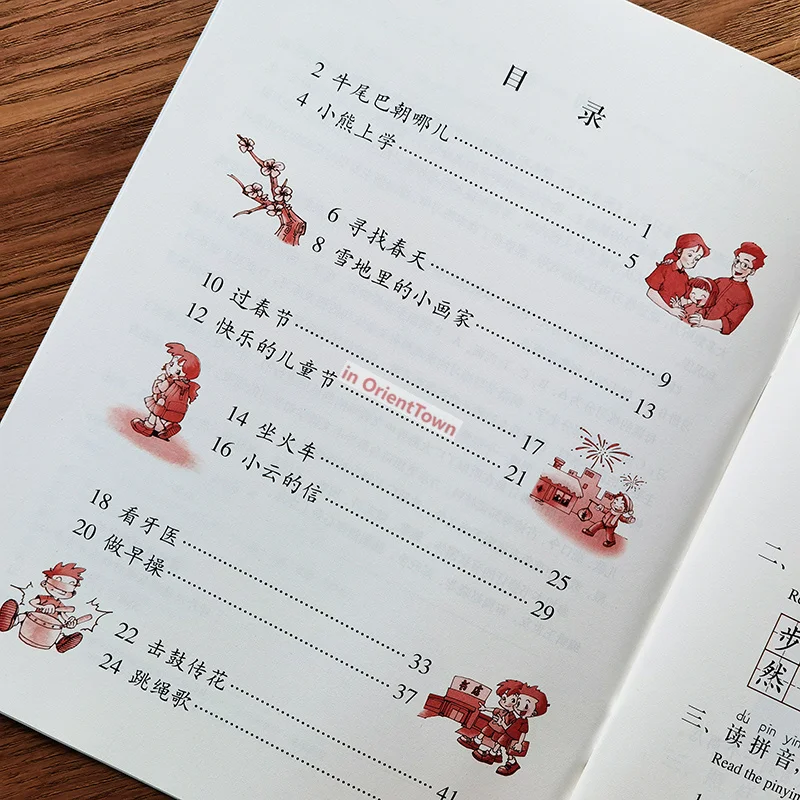 目 录
2 牛尾巴朝哪儿……1
4 小熊上学……5
6 寻找春天……9
8 雪地里的小画家……13
10 过春节……17
12 快乐的儿童节……21
in OrientTown
14 坐火车……25
16 小云的信……29
18 看牙医……33
20 做早操……37
22 击鼓传花……41
24 跳绳歌……
二、
步
然
dú pīn yīn
三、读拼音，
Read the pinyin